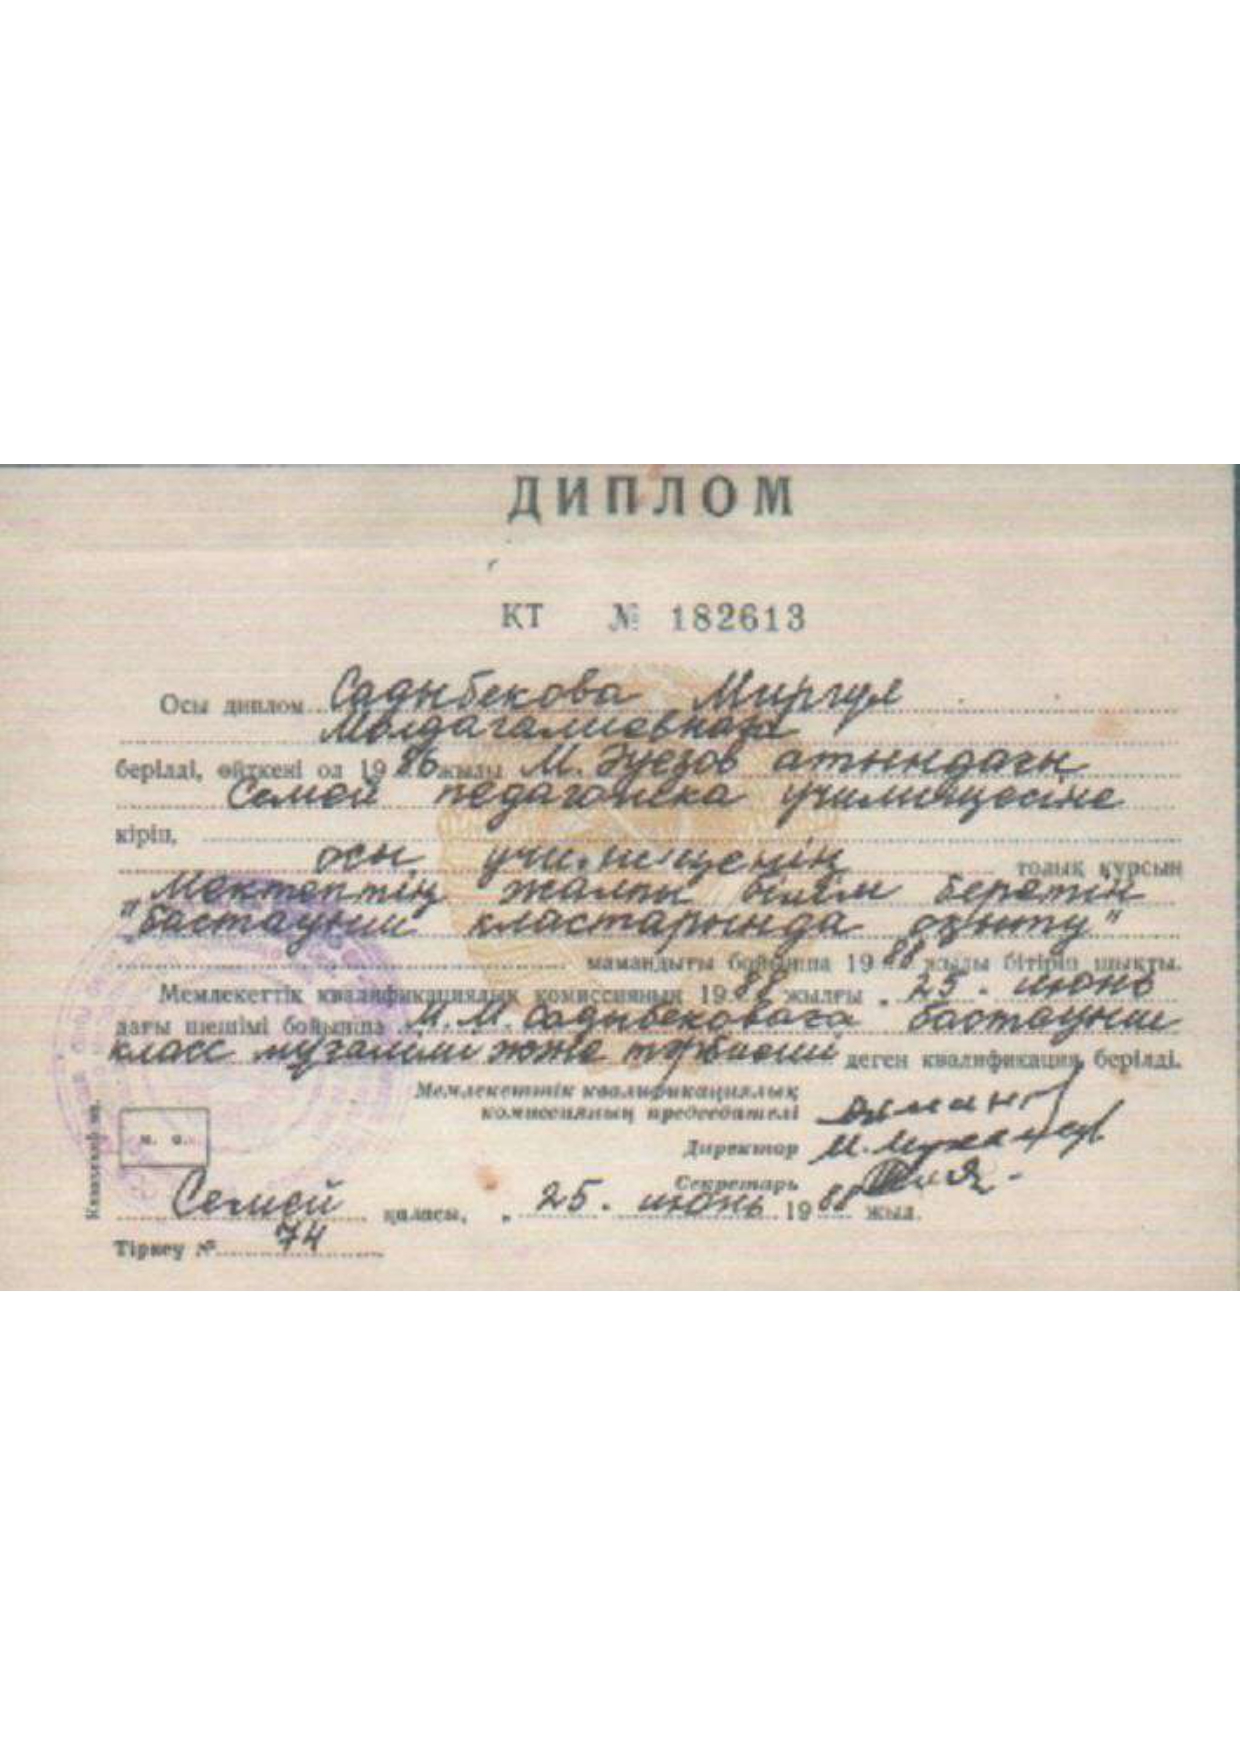 ДИПЛОМ
ҚТ № 182613
Осы диплом Садыбекова Миргул
Молдагалиевнаға
берілді, өйткені ол 19 86 жылы М. Әуезов атындағы
Семей педагогика училищесіне
кіріп,
осы училищенің толық курсын
"Мектептің жалпы білім беретін
бастауыш кластарында оқыту"
мамандығы бойынша 19 88 жылы бітіріп шықты.
Мемлекеттік квалификациялық комиссияның 19 88 жылғы „ 25. июнь
дағы шешімі бойынша М.М. Садыбековаға бастауыш
класс мұғалімі және тәрбиеші деген квалификация берілді.
Мемлекеттік квалификациялық
комиссияның председателі
Директор
Секретарь
м. о.
Семей қаласы, „ 25. июнь 19 88 жыл.
Тіркеу № 74